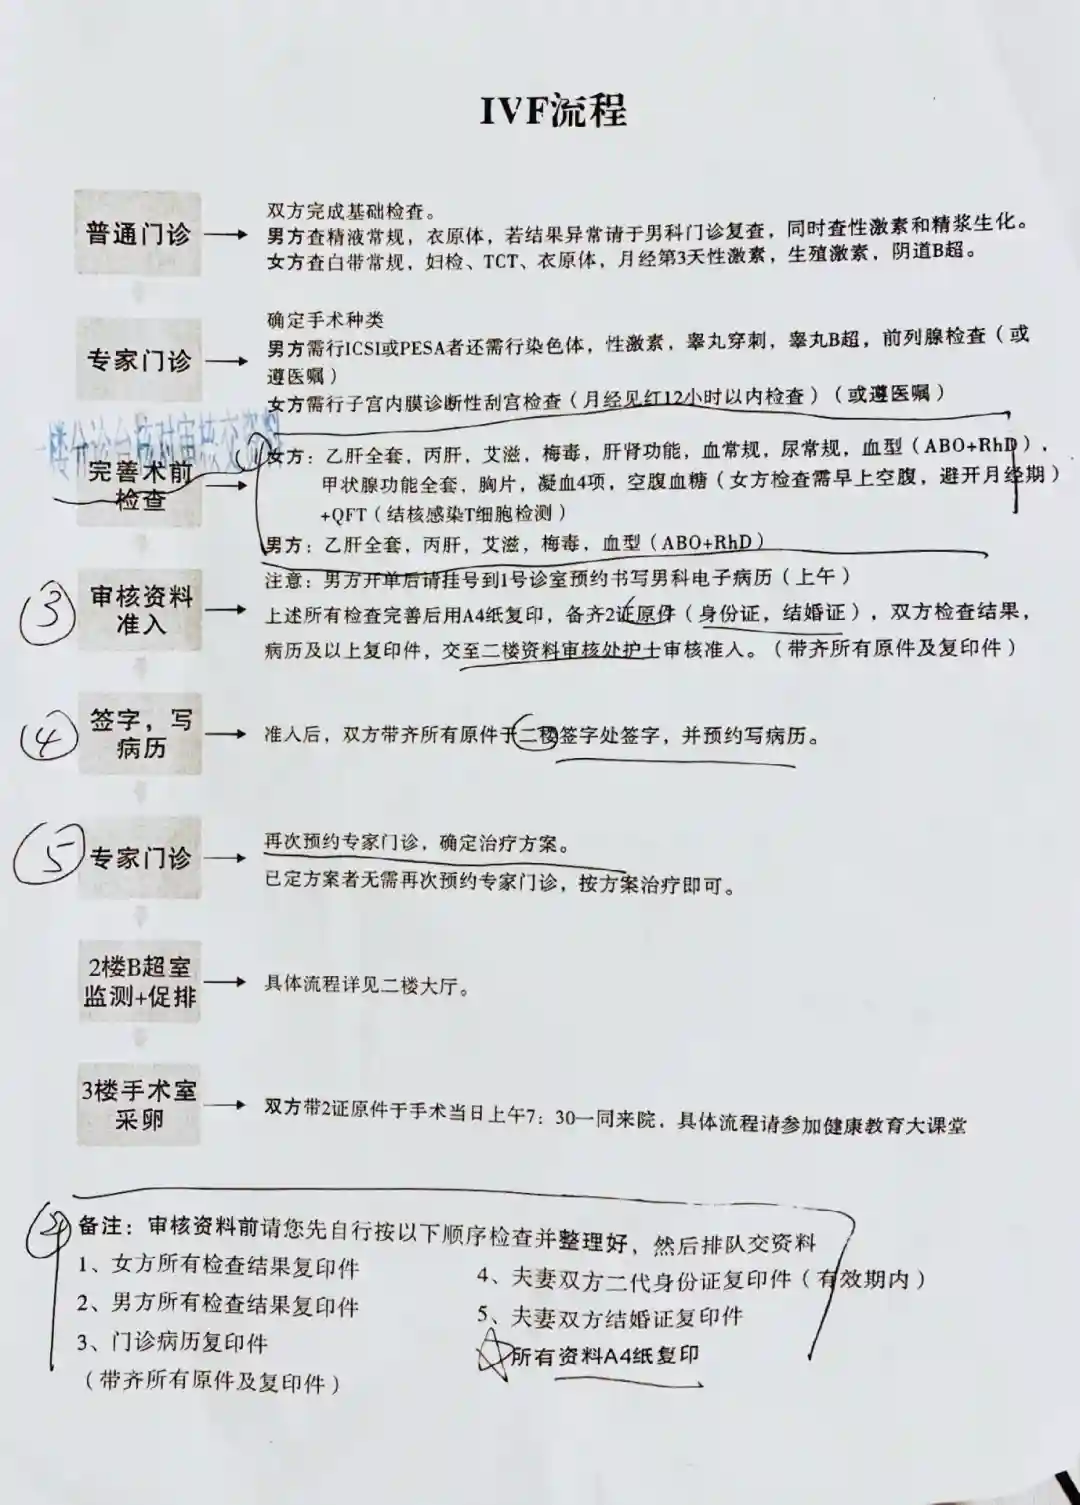 IVF流程
普通门诊
双方完成基础检查。
男方查精液常规，衣原体，若结果异常请于男科门诊复查，同时查性激素和精浆生化。
女方查白带常规，妇检、TCT、衣原体，月经第3天性激素，生殖激素，阴道B超。
专家门诊
确定手术种类
男方需行ICSI或PESA者还需行染色体，性激素，睾丸穿刺，睾丸B超，前列腺检查（或
遵医嘱）
女方需行子宫内膜诊断性刮宫检查（月经见红12小时以内检查）（或遵医嘱）
一楼分诊台核对审核交资料
完善术前
检查
女方：乙肝全套，丙肝，艾滋，梅毒，肝肾功能，血常规，尿常规，血型（ABO+RhD），
甲状腺功能全套，胸片，凝血4项，空腹血糖（女方检查需早上空腹，避开月经期）
+QFT（结核感染T细胞检测）
男方：乙肝全套，丙肝，艾滋，梅毒，血型（ABO+RhD）
注意：男方开单后请挂号到1号诊室预约书写男科电子病历（上午）
③
审核资料
准入
上述所有检查完善后用A4纸复印，备齐2证原件（身份证，结婚证），双方检查结果，
病历及以上复印件，交至二楼资料审核处护士审核准入。（带齐所有原件及复印件）
④
签字，写
病历
准入后，双方带齐所有原件于二楼签字处签字，并预约写病历。
⑤
专家门诊
再次预约专家门诊，确定治疗方案。
已定方案者无需再次预约专家门诊，按方案治疗即可。
2楼B超室
监测+促排
具体流程详见二楼大厅。
3楼手术室
采卵
双方带2证原件于手术当日上午7：30一同来院，具体流程请参加健康教育大课堂
②
备注：审核资料前请您先自行按以下顺序检查并整理好，然后排队交资料
1、女方所有检查结果复印件
2、男方所有检查结果复印件
3、门诊病历复印件
（带齐所有原件及复印件）
4、夫妻双方二代身份证复印件（有效期内）
5、夫妻双方结婚证复印件
☆所有资料A4纸复印